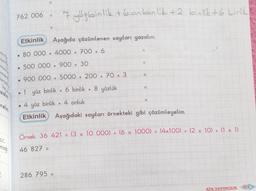 762 006 = 7 yüzbinlik + 6 onbinlik + 2 binlik + 6 birlik
Etkinlik Aşağıda çözümlenen sayıları yazalım.
• 80 000 + 4000 + 700 + 6 =
• 500 000 + 900 + 30 =
• 900 000 + 5000 + 200 + 70 + 3 =
• 1 yüz binlik + 6 binlik + 8 yüzlük =
• 4 yüz binlik + 4 onluk =
Etkinlik Aşağıdaki sayıları örnekteki gibi çözümleyelim.
Örnek: 36 421 = (3 x 10 000) + (6 x 1000) + (4x100) + (2 x 10) + (1 x 1)
46 827 =
286 795 =